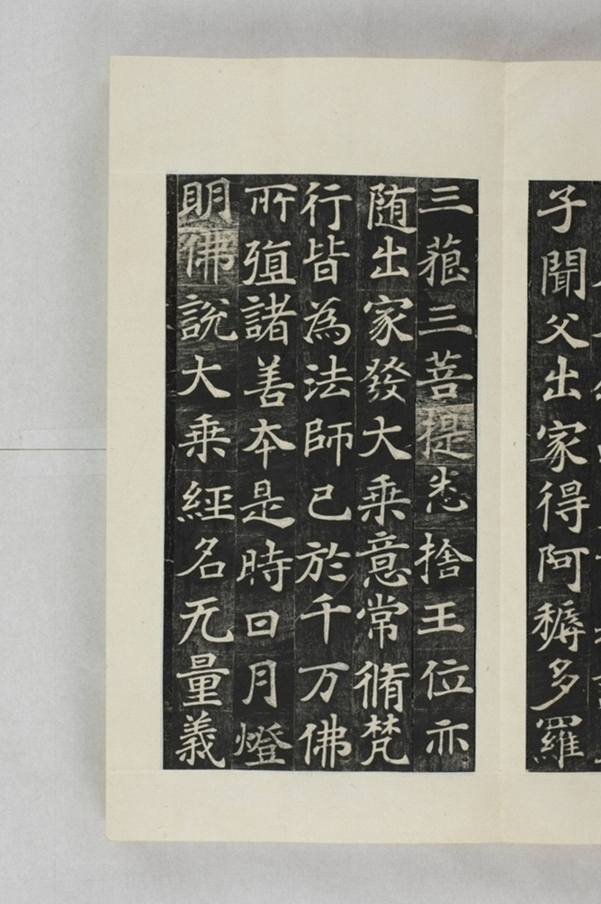 子聞父出家得阿耨多羅
三藐三菩提悉捨王位亦
随出家發大乘意常脩梵
行皆為法師已於千万佛
所殖諸善本是時日月燈
明佛説大乘經名无量義